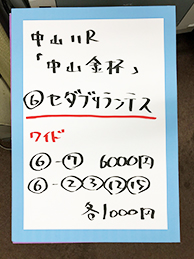 中山11R
「中山金杯」
⑥セダブリランテス
ワイド
⑥-⑦ 6000円
⑥-②③⑫⑬
各1000円